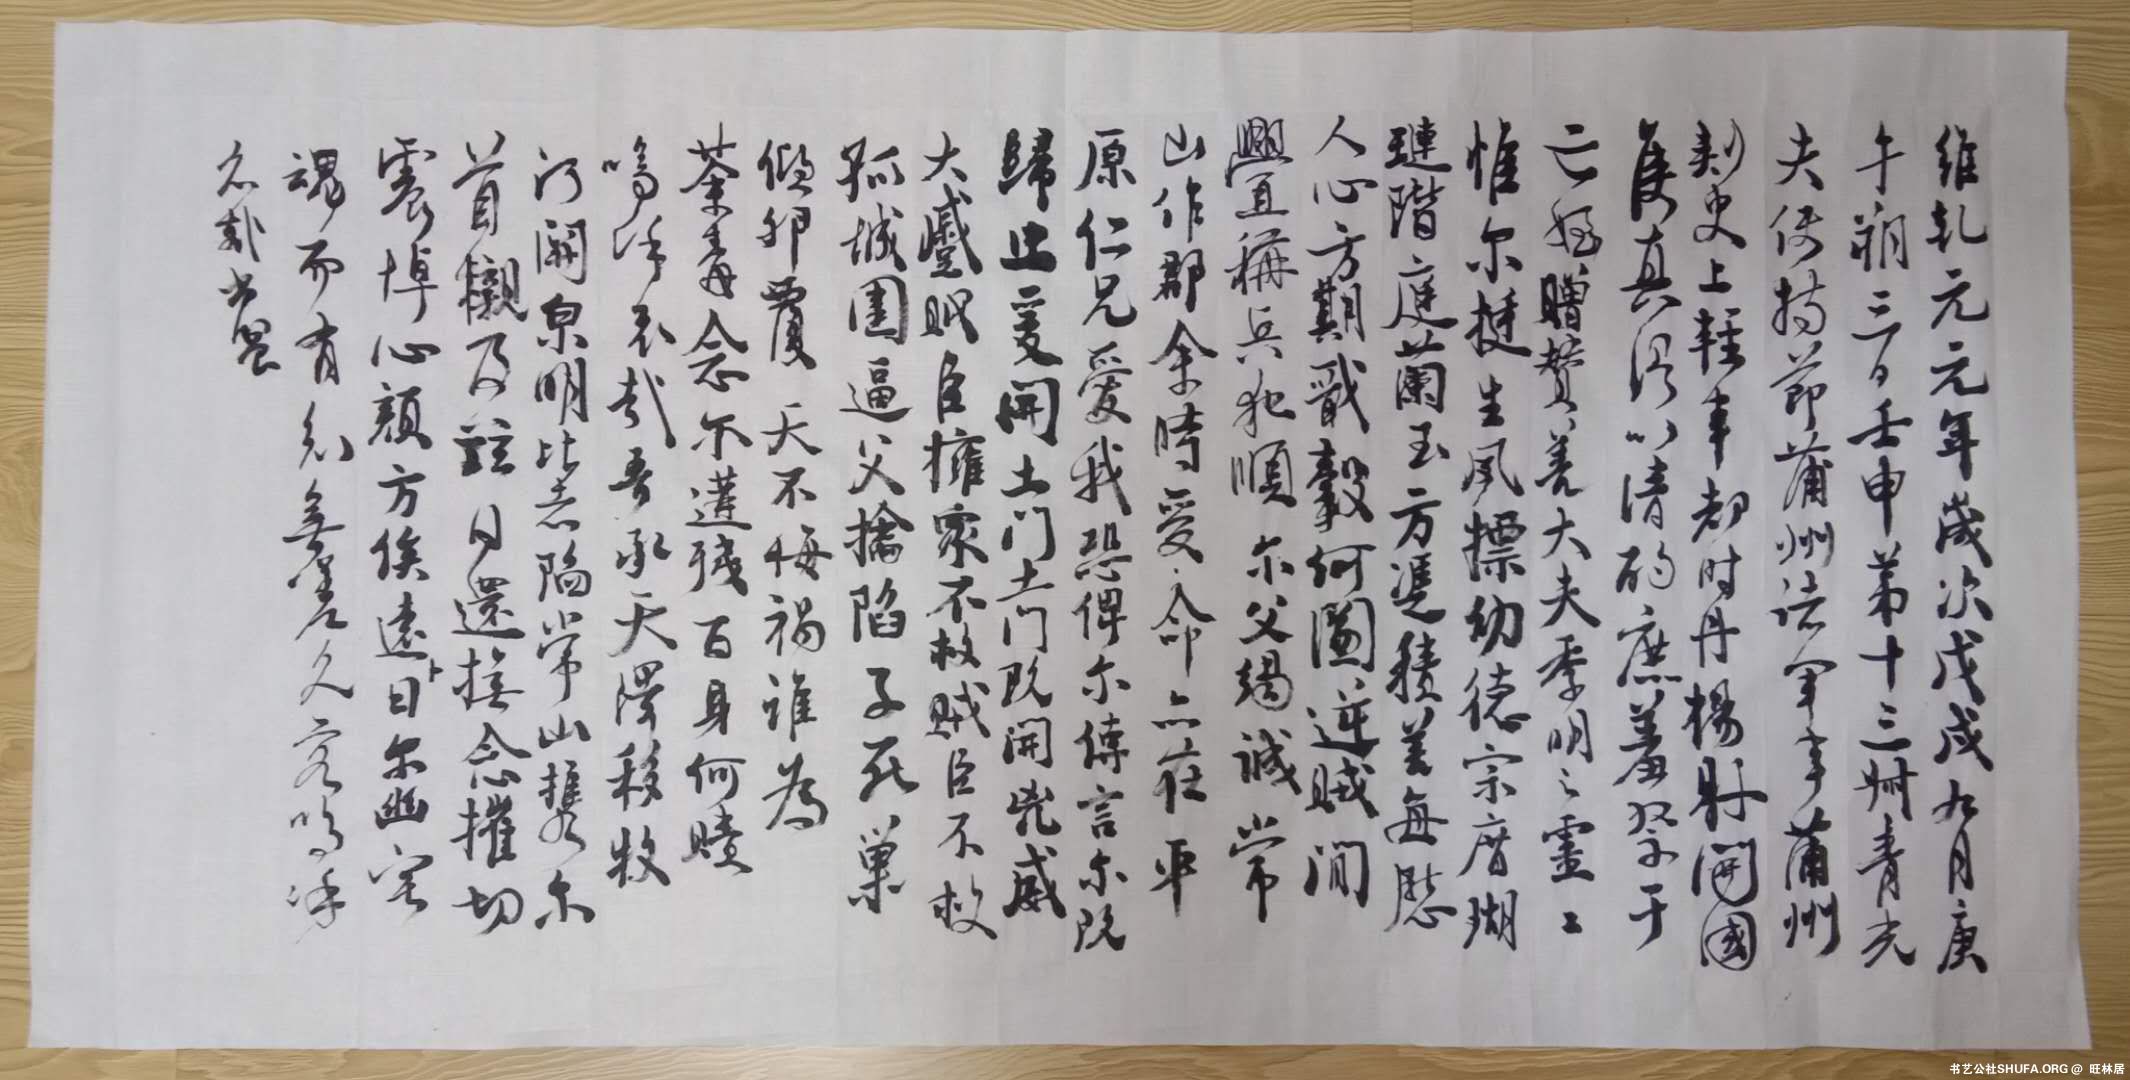 維乾元元年歲次戊戌九月庚
午朔三日壬申第十三州青光
夫使持節蒲州諸軍事蒲州
刺史上輕車都尉丹楊縣開國
侯真卿以清酌庶羞祭于
亡姪贈贊善大夫季明之靈
惟尔挺生夙標幼德宗庿瑚
璉階庭蘭玉方憑積善每慰
人心方期戩穀何圖逆賊間
釁稱兵犯順尔父竭誠常
山作郡余時受命亦在平
原仁兄愛我恐俾尔傳言尔既
歸止爰開土门土门既開兇威
大蹙賊臣擁衆不救賊臣不救
孤城圍逼父擒陷子死巢
傾卵覆天不悔禍誰為
荼毒念尔遘殘百身何贖
嗚呼哀哉吾承天澤移牧
河關泉明比者陷常山攜尔
首櫬及茲日還撫念摧切
震悼心顏方俟遠日尔幽宅
魂而有知無嗟久客嗚呼
哀哉尚饗
书艺公社SHUFA.ORG @ 旺林居